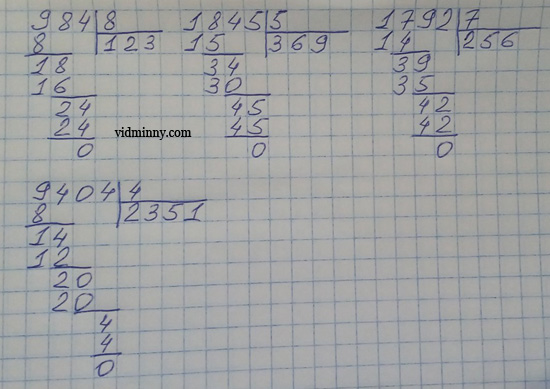 984 8
8 123
18
16
24
24
0
1845 5
15 369
34
30
45
45
0
1792 7
14 256
39
35
42
42
0
vidminny.com
9404 4
8 2351
14
12
20
20
4
4
0